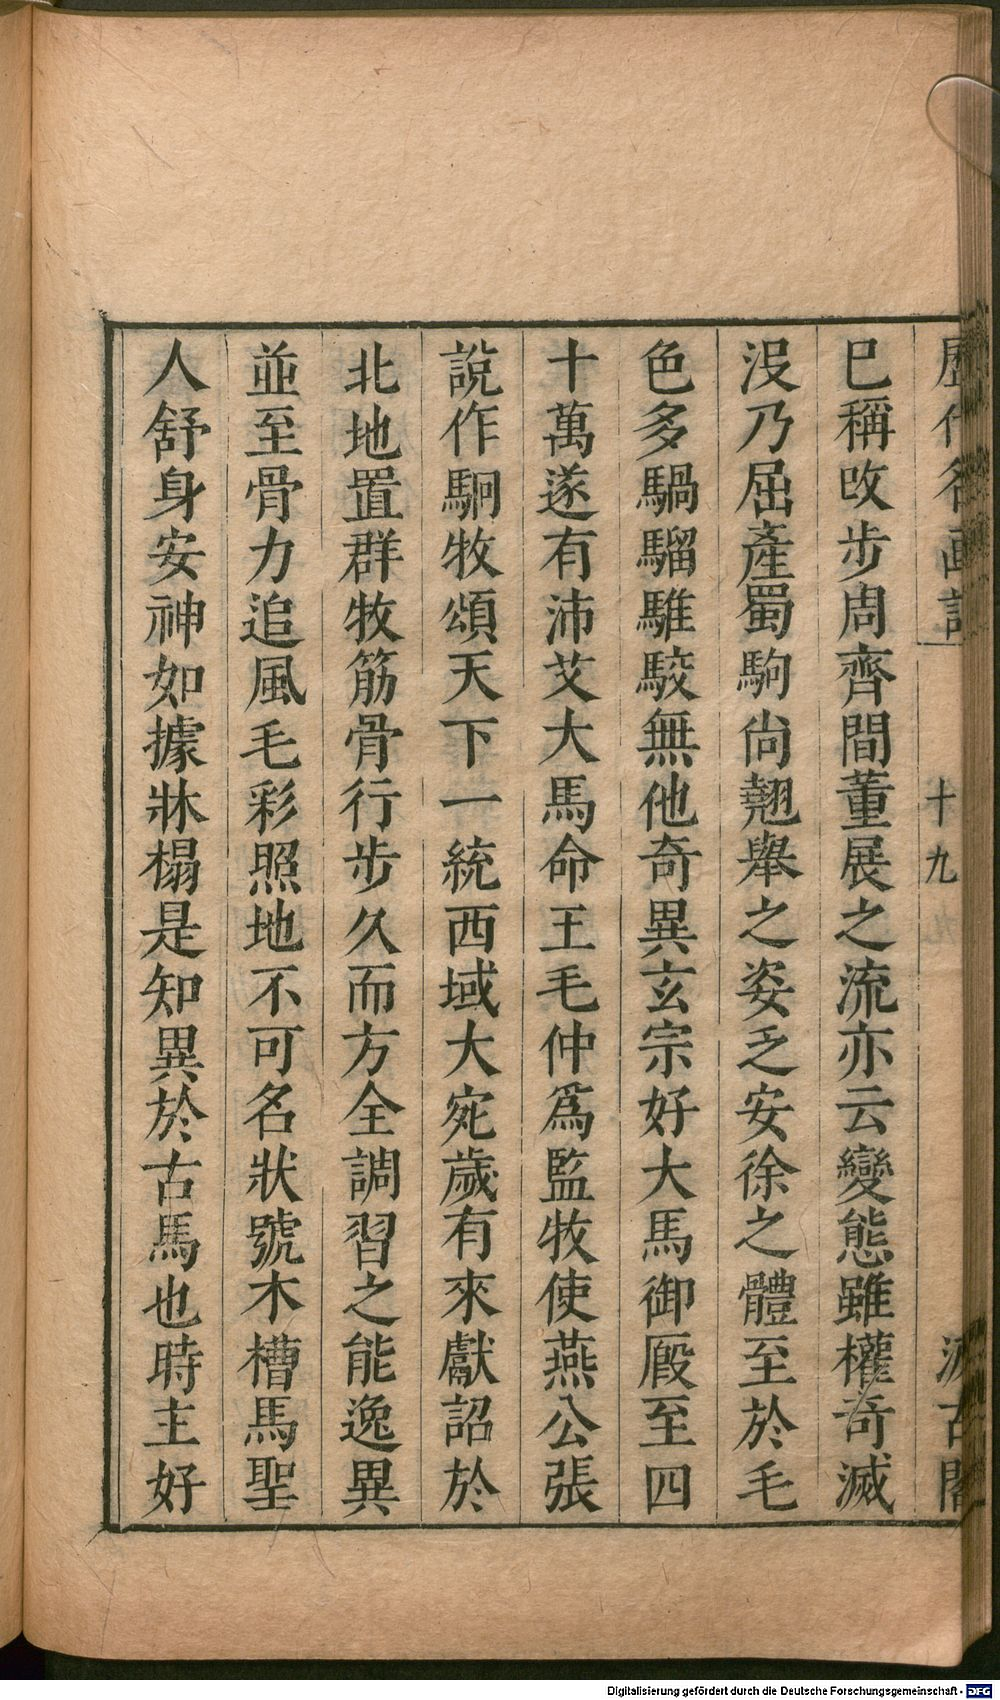 歷代名畫記
十九
汲古閣
巳稱改步周齊間董展之流亦云變態雖權奇滅
沒乃屈產蜀駒尙翹舉之姿乏安徐之體至於毛
色多騧騮騅駮無他奇異玄宗好大馬御廐至四
十萬遂有沛艾大馬命王毛仲爲監牧使燕公張
說作駉牧頌天下一統西域大宛歲有來獻詔於
北地置群牧筋骨行步久而方全調習之能逸異
並至骨力追風毛彩照地不可名狀號木槽馬聖
人舒身安神如據牀榻是知異於古馬也時主好
Digitalisierung gefördert durch die Deutsche Forschungsgemeinschaft - DFG